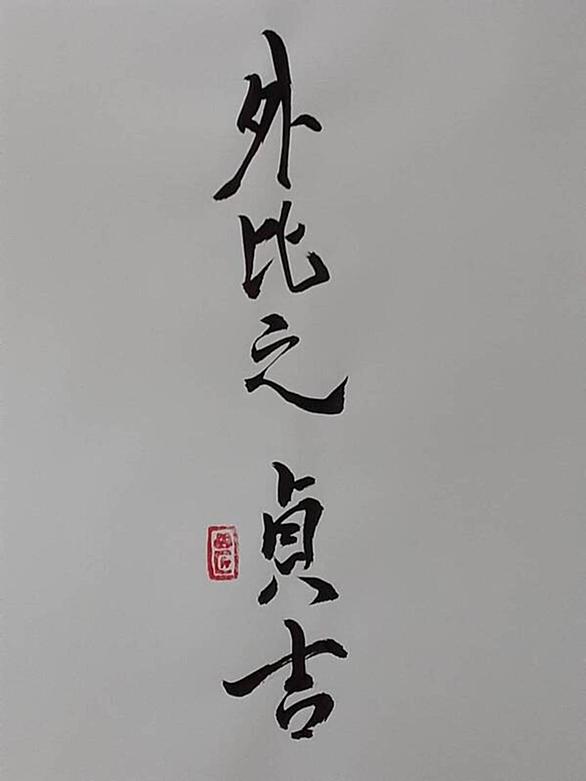 外比之 貞吉